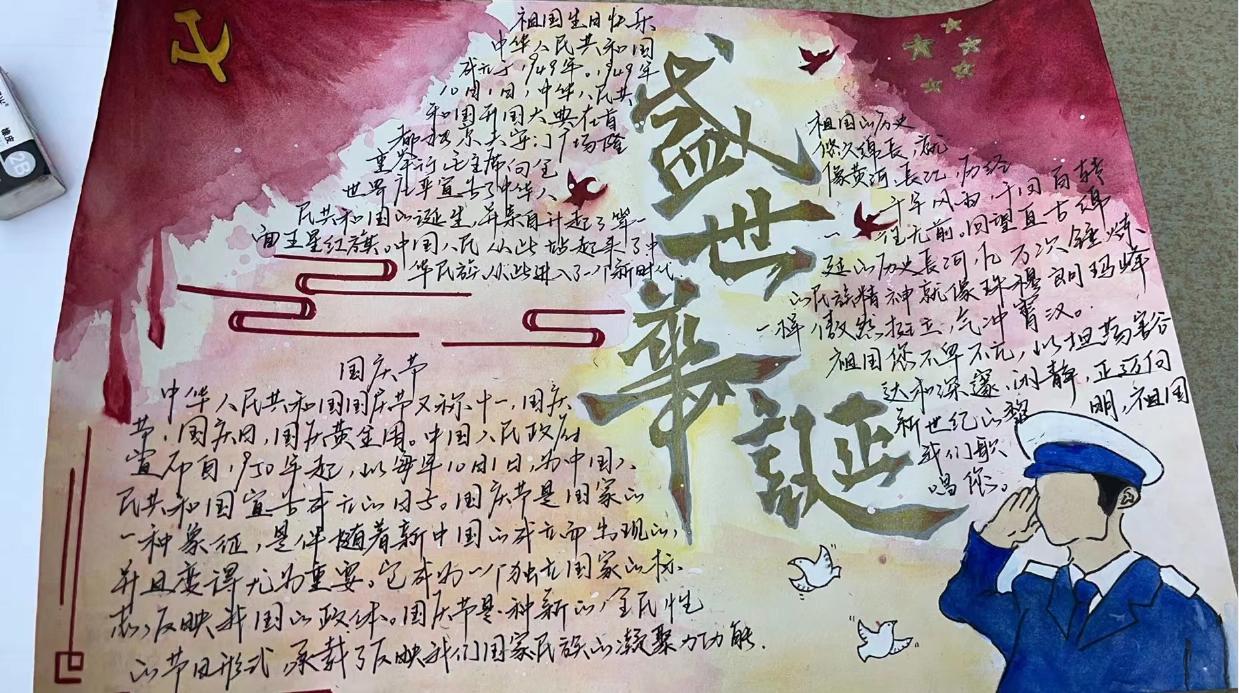 祖国生日快乐
中华人民共和国
成立于1949年。1949年
10月1日，中华人民共
和国开国大典在首
都北京天安门广场隆
重举行毛主席向全
世界庄严宣告了中华人
民共和国的诞生，并亲自升起了第一
面五星红旗。中国人民从此站起来了中
华民族从此进入了一个新时代
盛世華誕
祖国的历史
悠久绵长，就
像黄河长江，历经
千年风雨，千回百转
一往无前。回望亘古绵
延的历史长河，几万次锤炼
的民族精神就像珠穆朗玛峰
一样傲然挺立，气冲霄汉。
祖国您不卑不亢，以坦荡
达和深邃、闲静，正迈向
新世纪的黎明，祖国
我们歌
唱您。
国庆节
中华人民共和国国庆节又称十一，国庆
节，国庆日，国庆黄金周。中国人民政府
宣布自1950年起，以每年10月1日，为中国人
民共和国宣告成立的日子。国庆节是国家的
一种象征，是伴随着新中国的成立而出现的，
并且变得尤为重要。它成为一个独立国家的标
志，反映我国的政体。国庆节是一种新的、全民性
的节日形式，承载了反映我们国家民族的凝聚力功能.
2B
橡皮